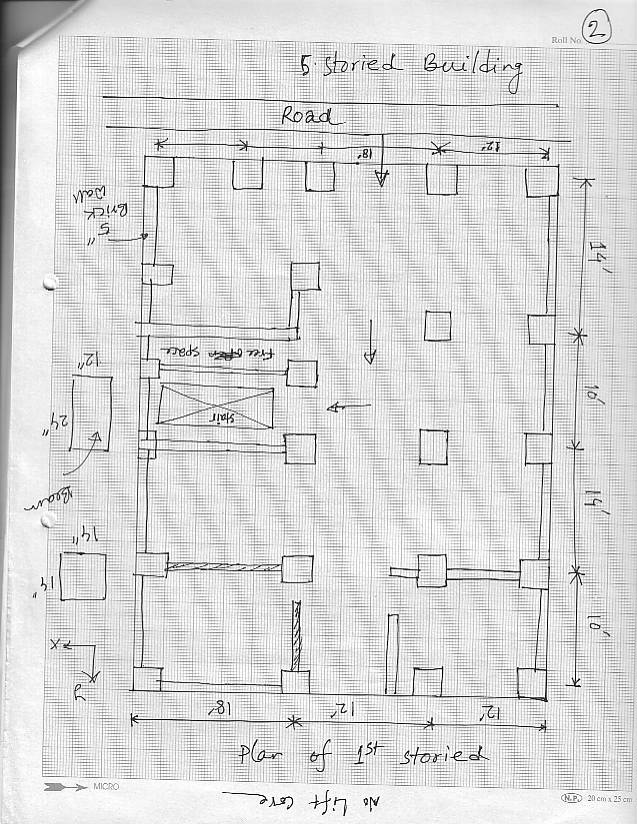 Roll No
2
5 storied Building
Road
18'
12'
5"
Brick
Wall
14'
Free open space
12"
24"
stair
10'
Beam
14"
14"
14'
10'
X
18'
12'
12'
Plan of 1st storied
MICRO
N.P. 20 cm x 25 cm
No Lift core